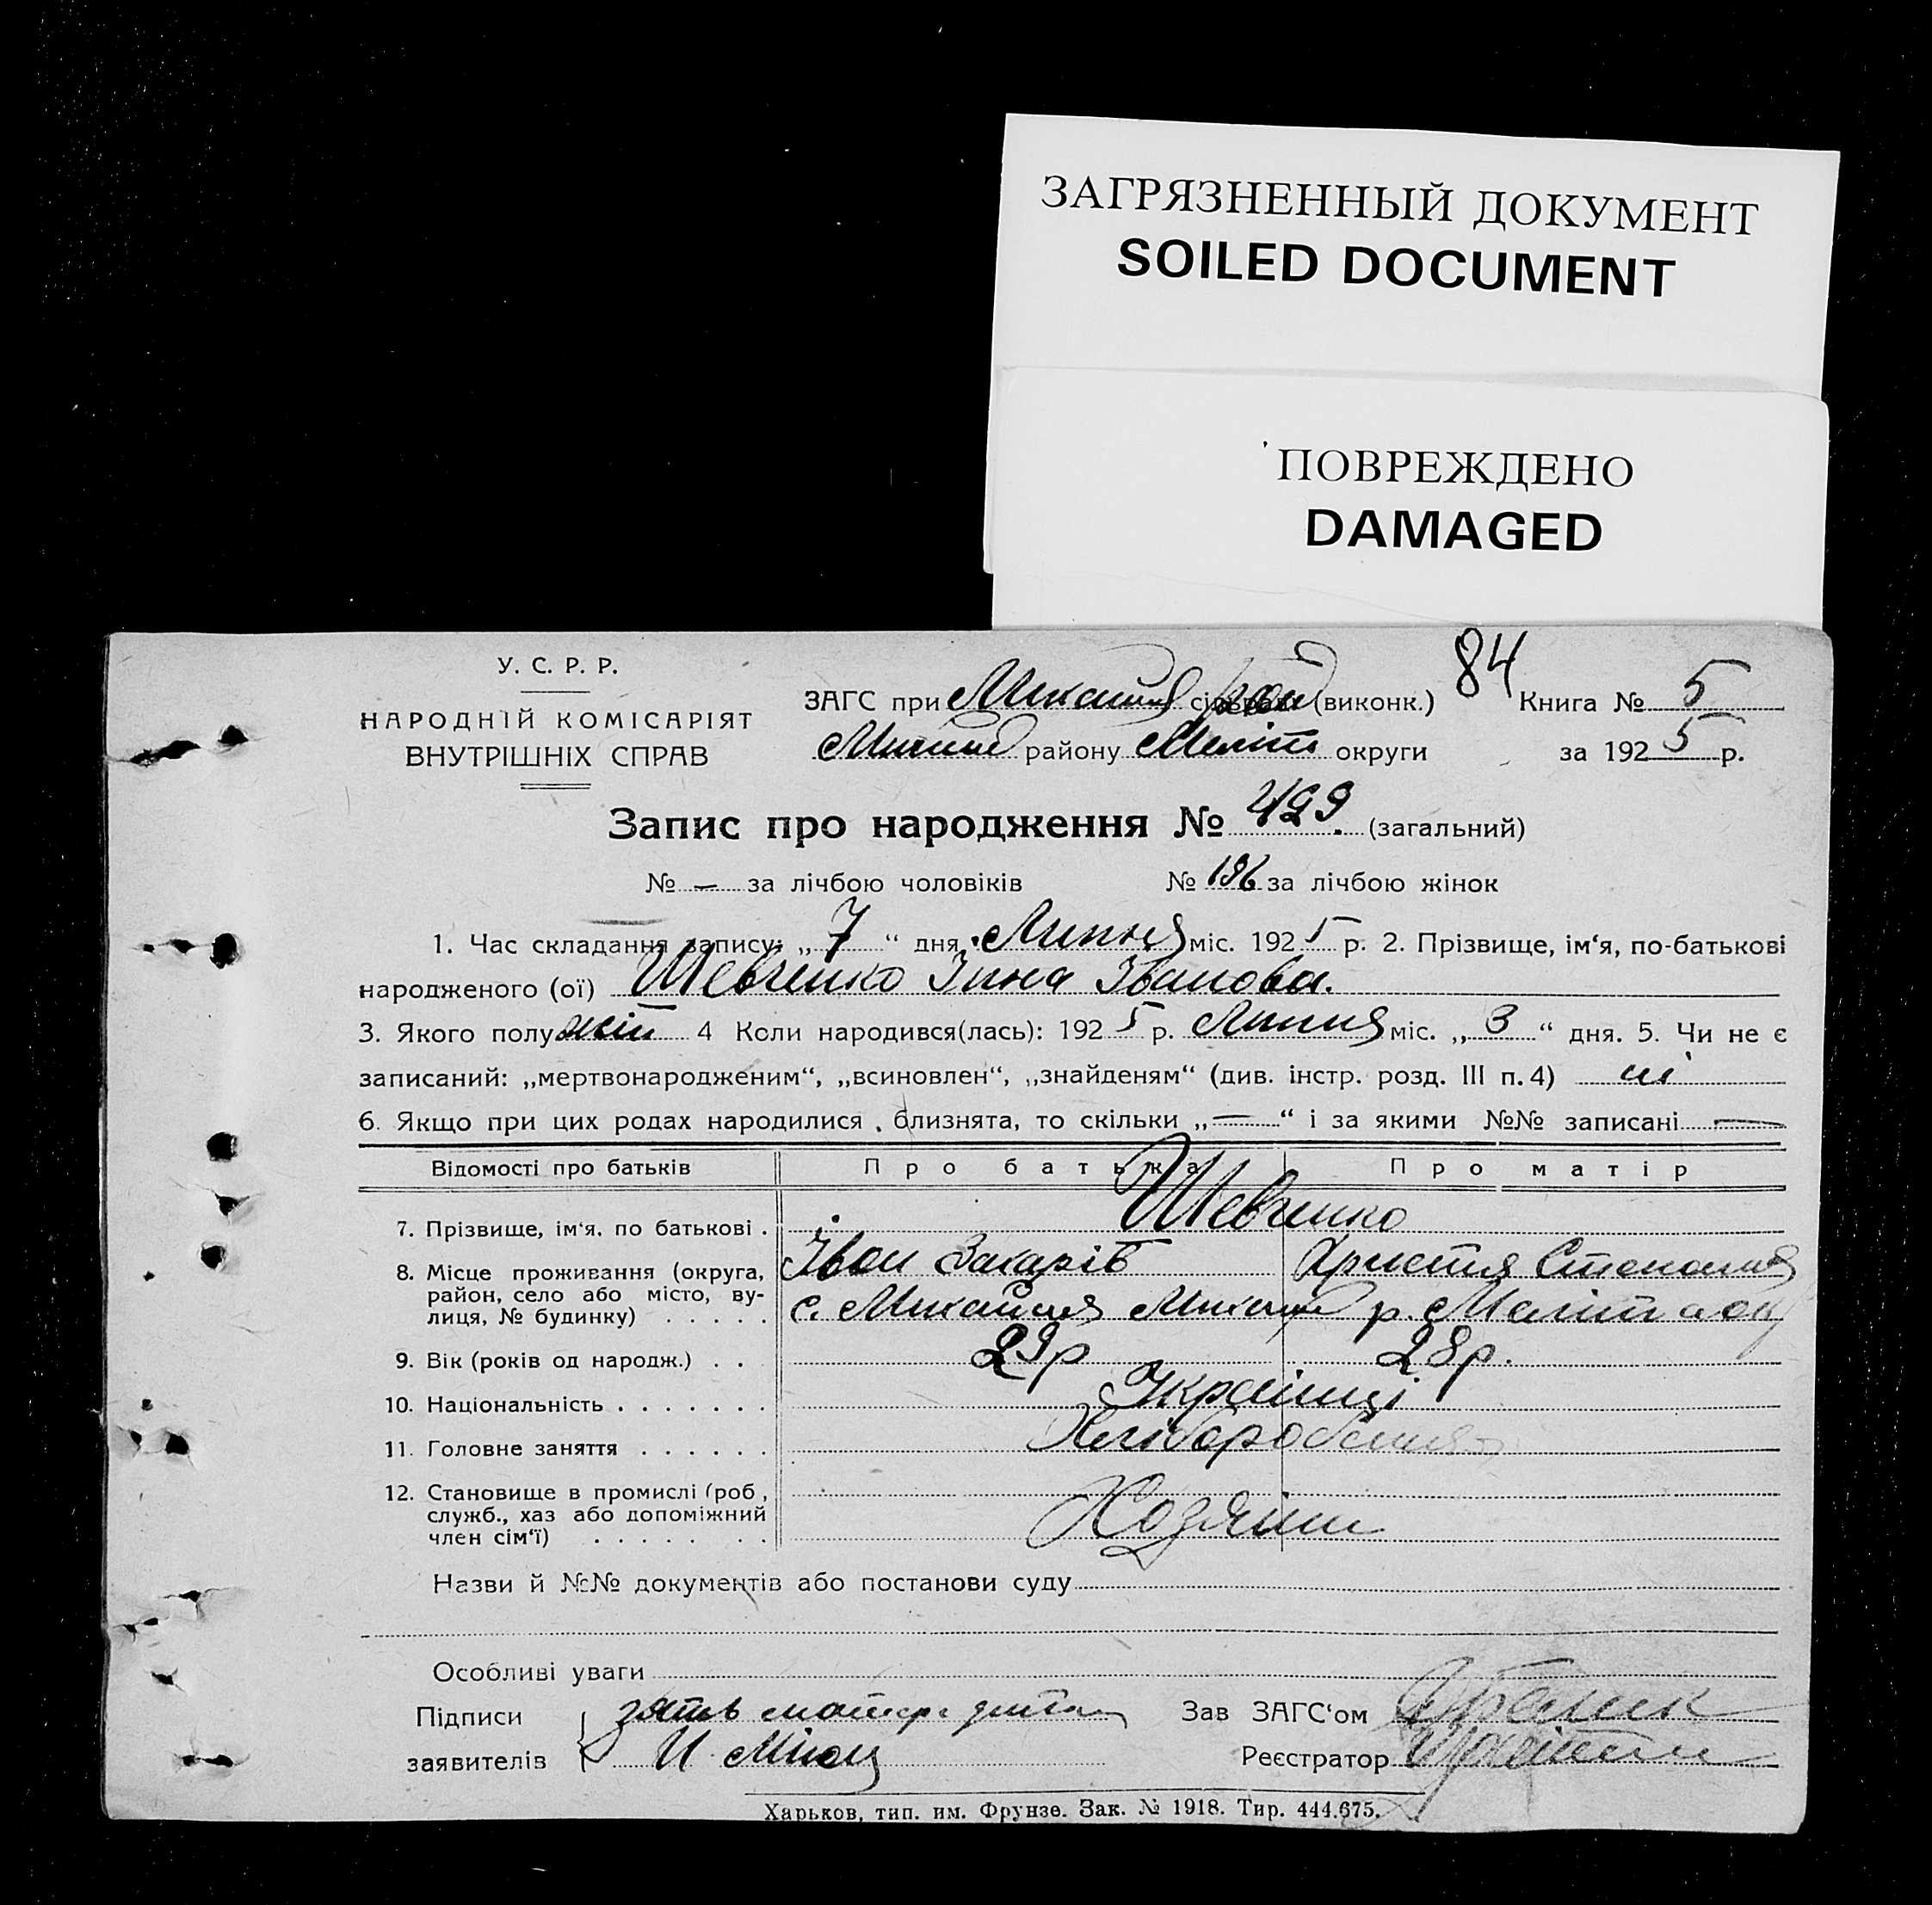 ЗАГРЯЗНЕННЫЙ ДОКУМЕНТ
SOILED DOCUMENT
ПОВРЕЖДЕНО
DAMAGED
84
У. С. Р. Р.
НАРОДНІЙ КОМІСАРІЯТ
ВНУТРІШНІХ СПРАВ
ЗАГС при сільради (виконк.) Книга № 5
району Меліт округи за 1925 р.
Запис про народження № 429. (загальний)
№ — за лічбою чоловіків № 196 за лічбою жінок
1. Час складання запису: „ 7 “ дня Липня міс. 1925 р. 2. Прізвище, ім‘я, по-батькові
народженого (ої) Шевченко Інна Іванова.
3. Якого полу жін 4 Коли народився(лась): 1925 р. Липня міс. „ 3 “ дня. 5. Чи не є
записаний: „мертвонародженим“, „всиновлен“, „знайденям“ (див. інстр. розд. III п. 4) ні
6. Якщо при цих родах народилися близнята, то скільки „ — “ і за якими №№ записані —
Відомості про батьків Про батька Про матір
7. Прізвище, ім‘я, по батькові . Шевченко
Іван Захарів Христя Степанівна
8. Місце проживання (округа,
район, село або місто, ву-
лиця, № будинку) . . . . . с. Михайлів р. Меліт
9. Вік (років од народж.) . . 29р 28р.
10. Національність . . . . . . . Українці
11. Головне заняття . . . . . . Хлібороб
12. Становище в промислі (роб.,
служб., хаз або допоміжний
член сім‘ї) . . . . . . . Хозяїни
Назви й №№ документів або постанови суду
Особливі уваги
Підписи Зав ЗАГС‘ом
заявителів И Реєстратор
Харьков, тип. им. Фрунзе. Зак. № 1918. Тир. 444.675.